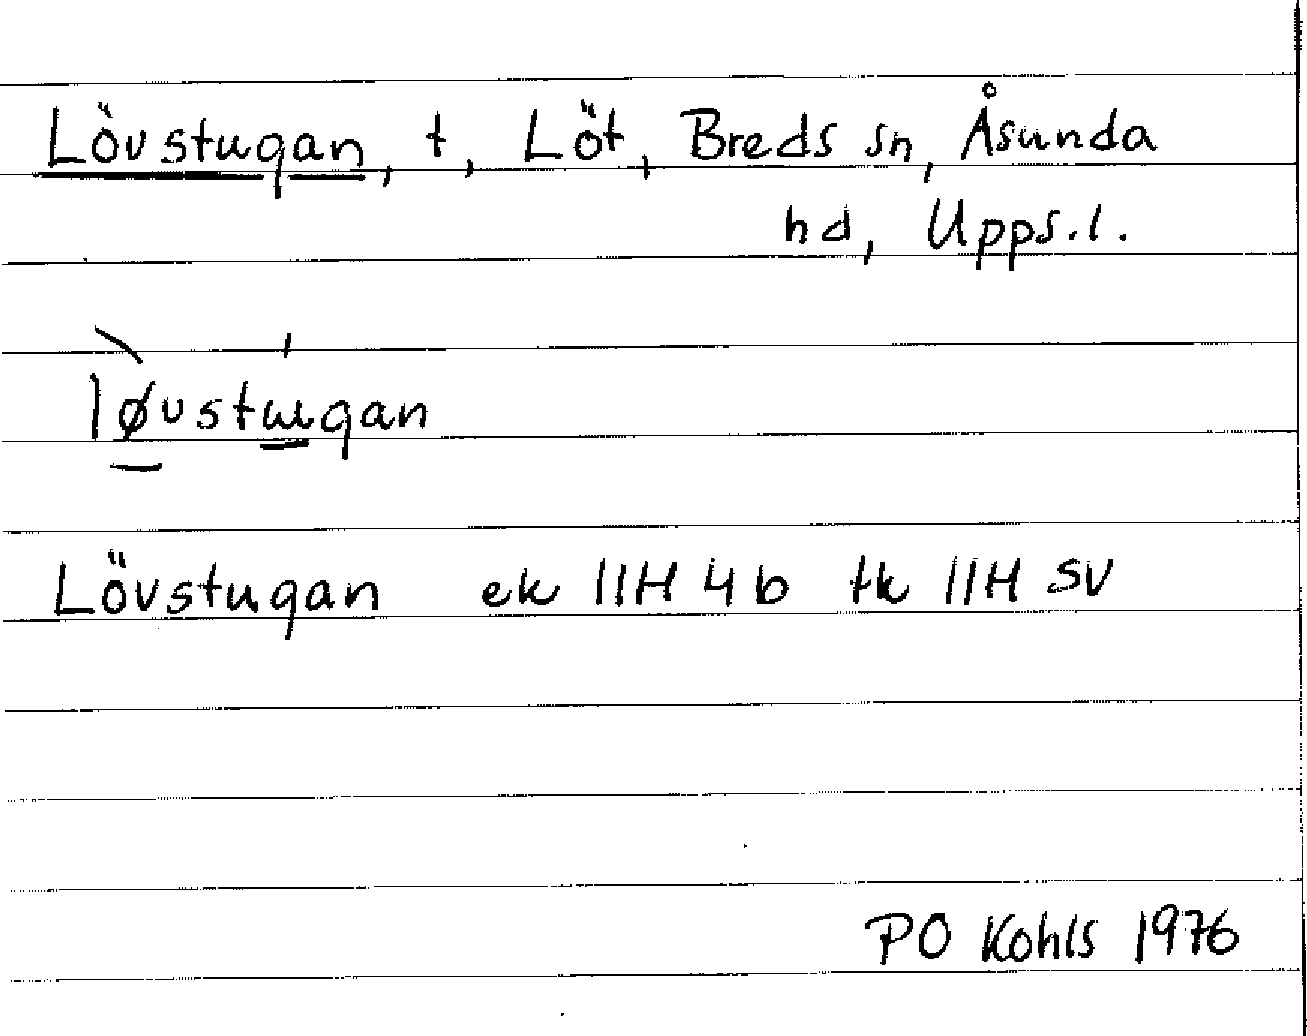 Lövstugan, t, Löt, Breds sn, Åsunda
hd, Upps.l.
lø̲̀vstɯ̲́gan
Lövstugan ek 11H 4b tk 11H SV
PO Kohls 1976